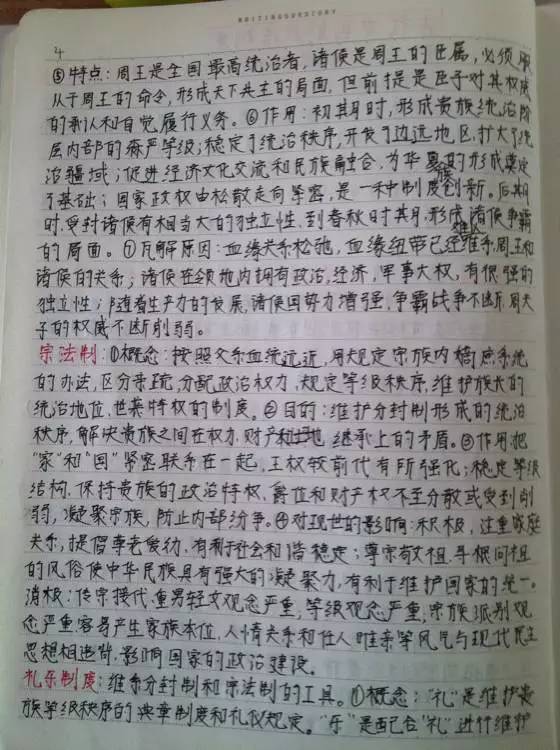 4
⑤特点：周王是全国最高统治者，诸侯是周王的臣属，必须服
从于周王的命令，形成天下共主的局面，但前提是臣子对其权威
的承认和自觉履行义务。⑥作用：初期时，形成贵族统治阶
层内部的森严等级；稳定了统治秩序，开发了边远地区，扩大了统
治疆域；促进经济文化交流和民族融合，为华夏族的形成奠定
了基础；国家政权由松散走向紧密，是一种制度创新。后期
时，受封诸侯有相当大的独立性，到春秋时期，形成诸侯争霸
的局面。⑦瓦解原因：血缘关系松弛，血缘纽带已经难以维系周王和
诸侯的关系；诸侯在领地内拥有政治，经济，军事大权，有很强的
独立性；随着生产力的发展，诸侯国势力增强，争霸战争不断，周天
子的权威不断削弱。
宗法制：①概念：按照父系血统远近，用规定宗族内嫡庶系统
的办法，区分亲疏，分配政治权力，规定等级秩序，维护族长的
统治地位，世袭特权的制度。②目的：维护分封制形成的统治
秩序，解决贵族之间在权力，财产和土地 继承上的矛盾。③作用：把
“家”和“国”紧密联系在一起，王权较前代有所强化；稳定等级
结构，保持贵族的政治特权，爵位和财产权不至分散或受到削
弱，凝聚宗族，防止内部纷争。④对现世的影响：积极，注重家庭
关系，提倡孝老爱幼，有利于社会和谐稳定；尊宗敬祖，寻根问祖
的风俗使中华民族具有强大的凝聚力，有利于维护国家的统一。
消极：传宗接代，重男轻女观念严重，等级观念严重，宗族派别观
念严重容易产生家族本位，人情关系和任人唯亲等风气与现代民主
思想相违背，影响国家的政治建设。
礼乐制度：维系分封制和宗法制的工具。①概念：“礼”是维护贵
族等级秩序的典章制度和礼仪规定。“乐”是配合“礼”进行维护